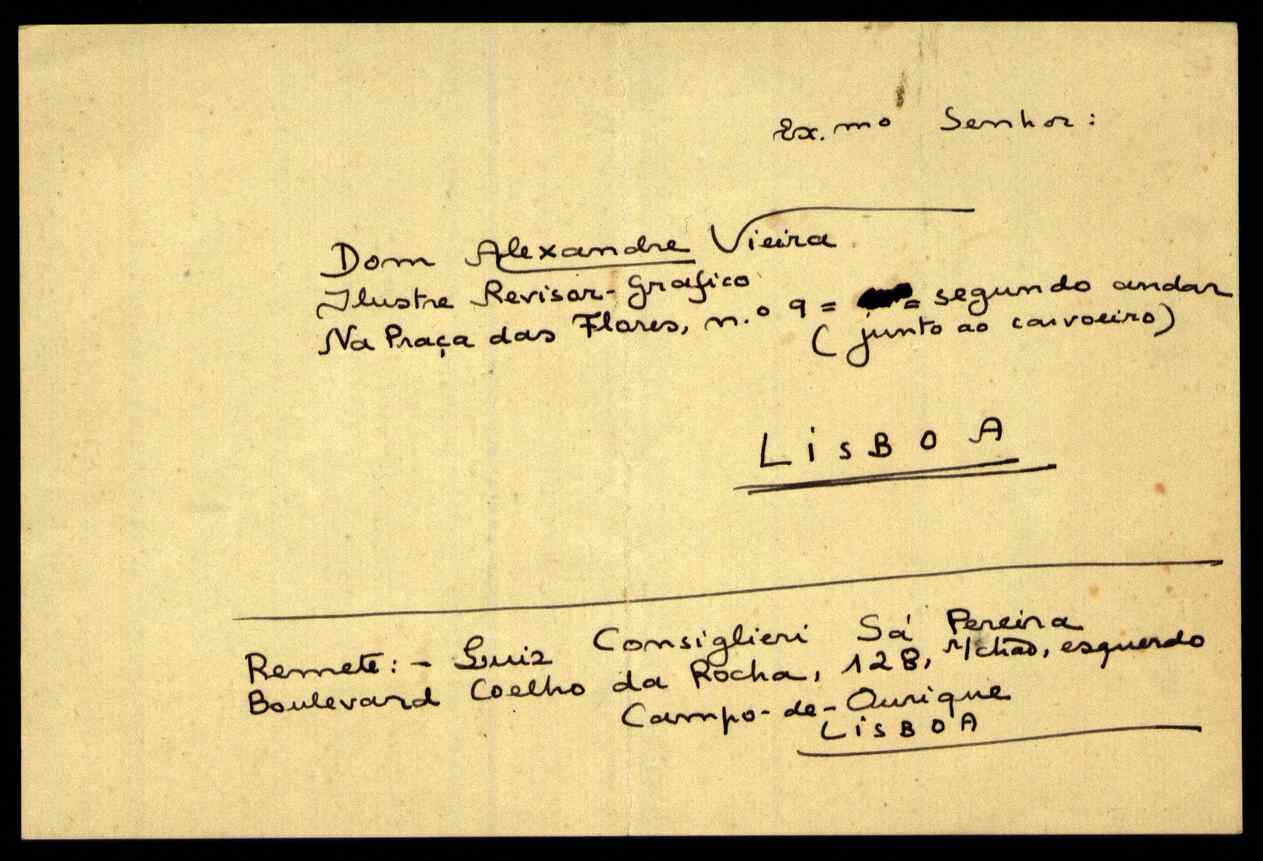 Ex.mo Senhor:
Dom Alexandre Vieira
Ilustre Revisor-Grafico
Na Praça das Flores, n.º 9 = = segundo andar
(junto ao carvoeiro)
LISBOA
Remete: - Luiz Consiglieri Sá Pereira
Boulevard Coelho da Rocha, 128, r/chão, esquerdo
Campo-de-Ourique
LISBOA